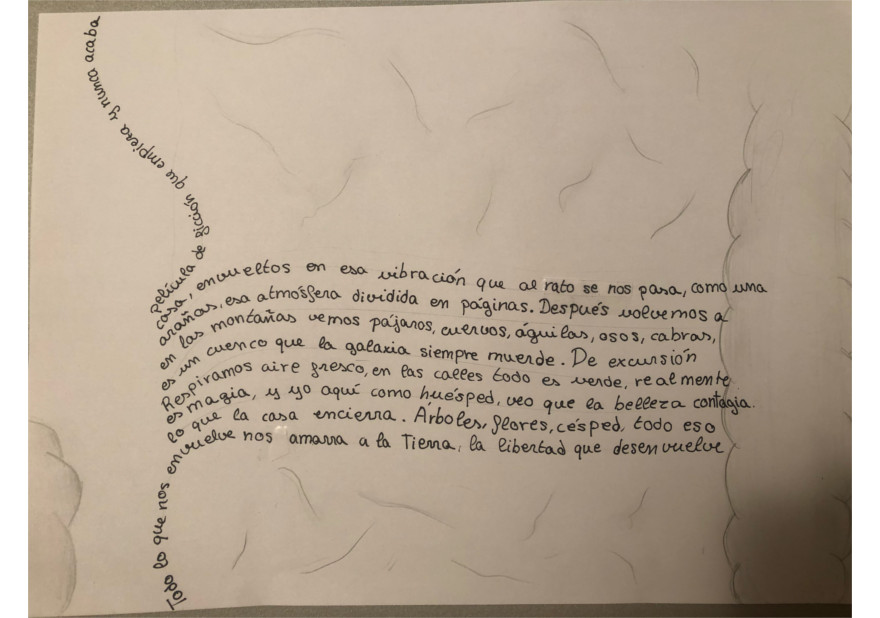 Todo lo que nos envuelve nos amarra a la Tierra, la libertad que desenvuelve
lo que la casa encierra. Árboles, flores, césped, todo eso
es magia, y yo aquí como huésped, veo que la belleza contagia.
Respiramos aire fresco, en las calles todo es verde, realmente
es un cuenco que la galaxia siempre muerde. De excursión
en las montañas vemos pájaros, cuervos, águilas, osos, cabras,
arañas, esa atmósfera dividida en páginas. Después volvemos a
casa, envueltos en esa vibración que al rato se nos pasa, como una
película de ficción que empieza y nunca acaba